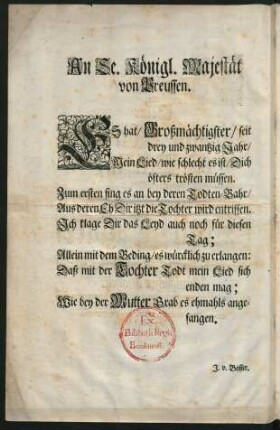 An Se. Königl. Majestät
von Preussen.
ES hat/ Großmächtigster/ seit
drey und zwantzig Jahr/
Mein Lied/ wie schlecht es ist/ Dich
öfters trösten müssen.
Zum ersten fing es an bey deren Todten-Bahr/
Aus deren Eh Dir itzt die Tochter wird entrissen.
Ich klage Dir das Leyd auch noch für diesen
Tag;
Allein mit dem Beding/ es würcklich zu erlangen:
Daß mit der Tochter Todt mein Lied sich
enden mag;
Wie bey der Mutter Grab es ehmahls ange-
fangen.
Ex
Biblioth. Regia
Berolinensi.
J. v. Besser.